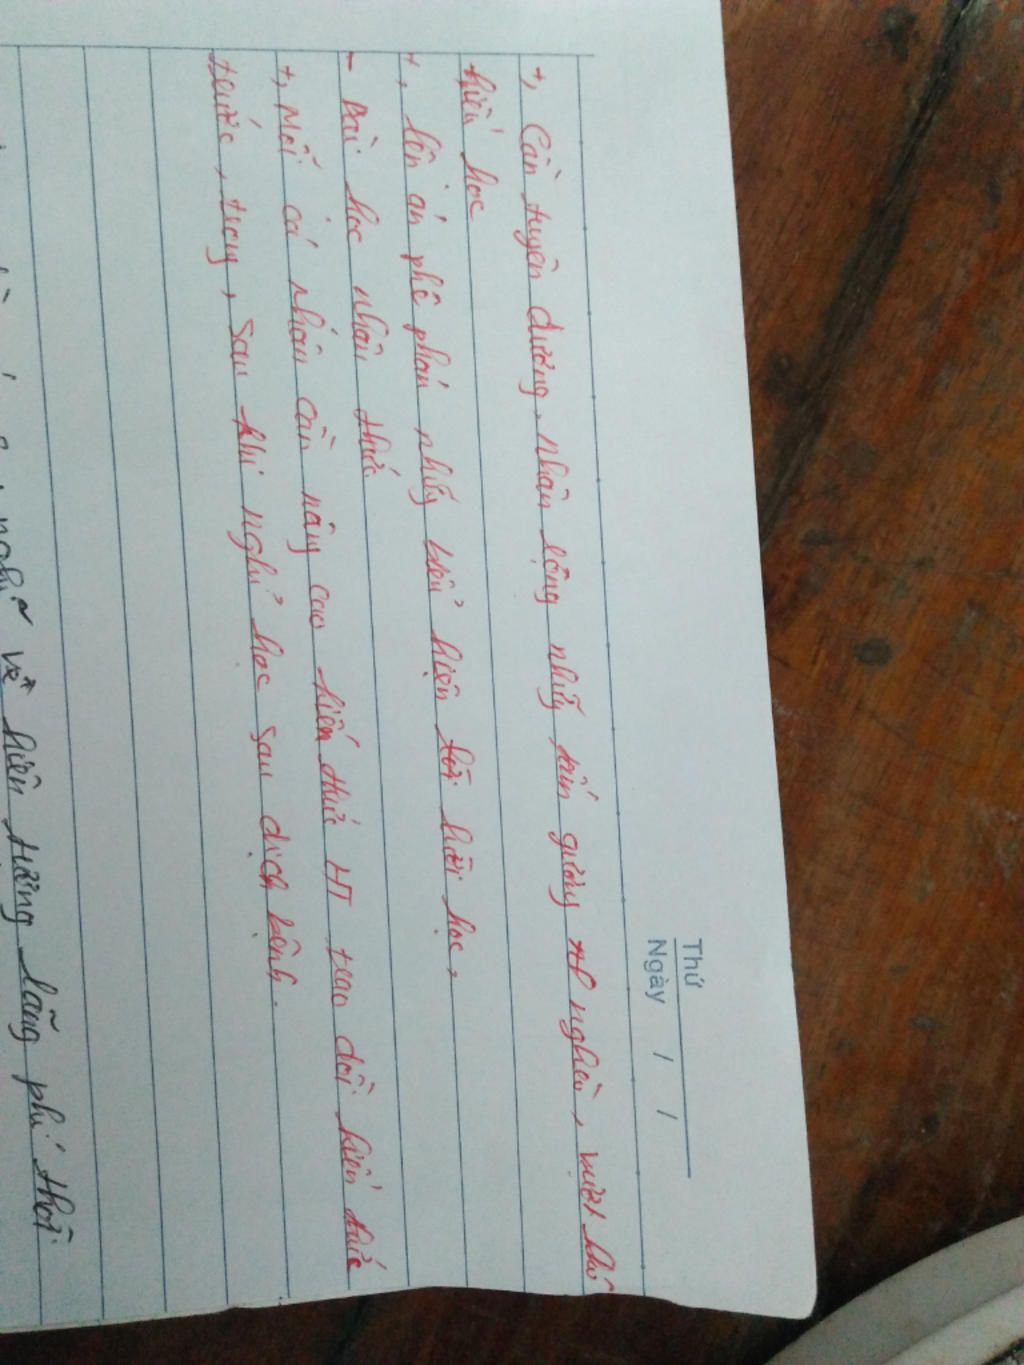 Thứ
Ngày / /
+, Cần tuyên dương, nhân rộng những tấm gương nghèo, vượt khó
hiếu học
+, lên án phê phán những biểu hiện lười học,
- Bài học nhận thức
+, Mỗi cá nhân cần nâng cao kiến thức HT trao dồi kiến thức
trước, trong, sau khi nghỉ học sau dịch bệnh.
nghĩ về hiện tượng lãng phí thời